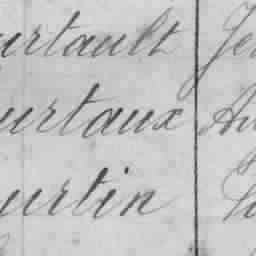 urtault Je
urtaux Au
urtin